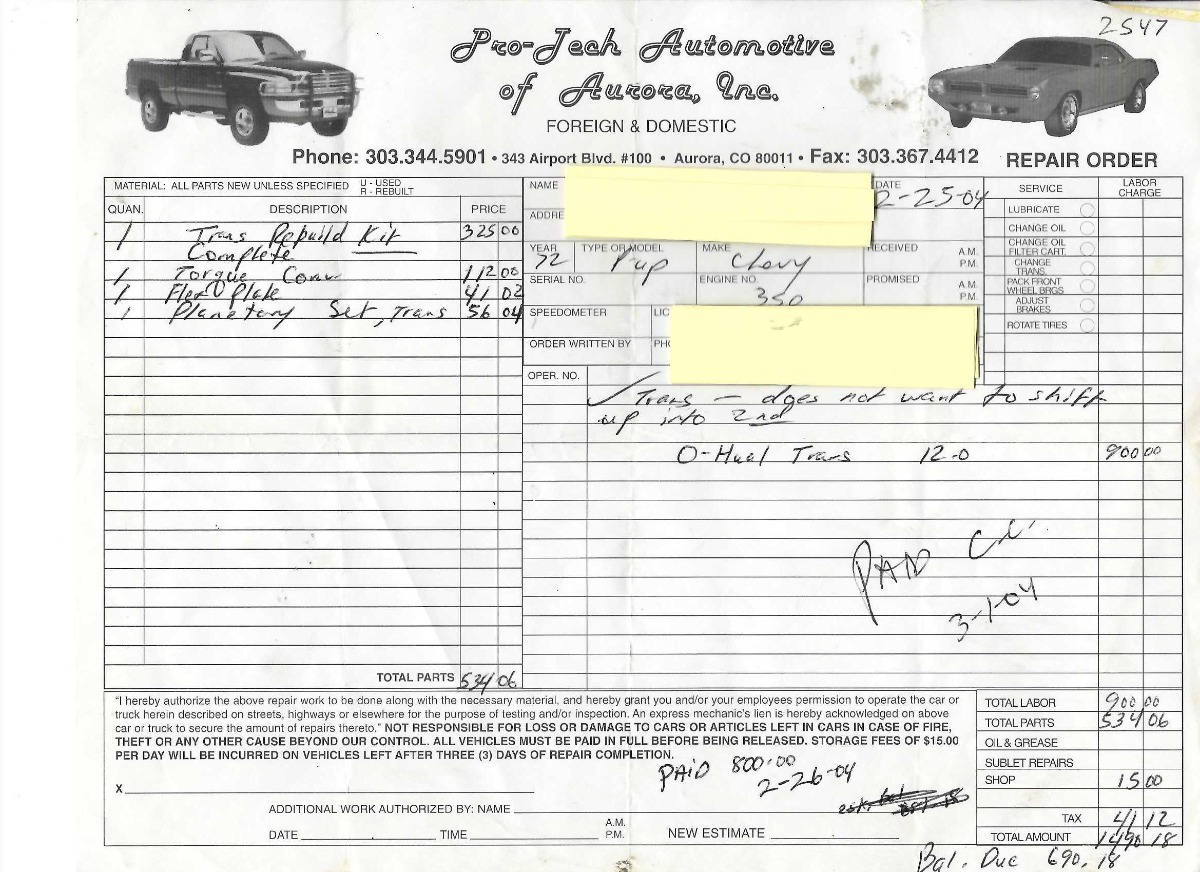 2547
Pro-Tech Automotive
of Aurora, Inc.
FOREIGN & DOMESTIC
Phone: 303.344.5901 • 343 Airport Blvd. #100 • Aurora, CO 80011 • Fax: 303.367.4412
REPAIR ORDER
MATERIAL: ALL PARTS NEW UNLESS SPECIFIED U - USED
R - REBUILT
QUAN. DESCRIPTION PRICE
1 Trans Rebuild Kit 325 00
Complete
1 Torque Conv 112 00
1 Flex Plate 41 02
1 Planetary Set, Trans 56 04
TOTAL PARTS 534 06
NAME
DATE 2-25-04
ADDRE
YEAR 72 TYPE OR MODEL P-up MAKE Chevy RECEIVED A.M.
P.M.
SERIAL NO. ENGINE NO. 350 PROMISED A.M.
P.M.
SPEEDOMETER LIC
ORDER WRITTEN BY PHO
SERVICE LABOR CHARGE
LUBRICATE
CHANGE OIL
CHANGE OIL
FILTER CART.
CHANGE
TRANS.
PACK FRONT
WHEEL BRGS
ADJUST
BRAKES
ROTATE TIRES
OPER. NO.
✓ Trans - does not want to shift
up into 2nd
O-Hual Trans 12.0 900 00
PAID
3-1-04
"I hereby authorize the above repair work to be done along with the necessary material, and hereby grant you and/or your employees permission to operate the car or
truck herein described on streets, highways or elsewhere for the purpose of testing and/or inspection. An express mechanic's lien is hereby acknowledged on above
car or truck to secure the amount of repairs thereto." NOT RESPONSIBLE FOR LOSS OR DAMAGE TO CARS OR ARTICLES LEFT IN CARS IN CASE OF FIRE,
THEFT OR ANY OTHER CAUSE BEYOND OUR CONTROL. ALL VEHICLES MUST BE PAID IN FULL BEFORE BEING RELEASED. STORAGE FEES OF $15.00
PER DAY WILL BE INCURRED ON VEHICLES LEFT AFTER THREE (3) DAYS OF REPAIR COMPLETION.
PAID 800.00
2-26-04
X
ADDITIONAL WORK AUTHORIZED BY: NAME
DATE TIME A.M.
P.M. NEW ESTIMATE
TOTAL LABOR 900 00
TOTAL PARTS 534 06
OIL & GREASE
SUBLET REPAIRS
SHOP 15 00
TAX 41 12
TOTAL AMOUNT 1490 18
Bal. Due 690.18